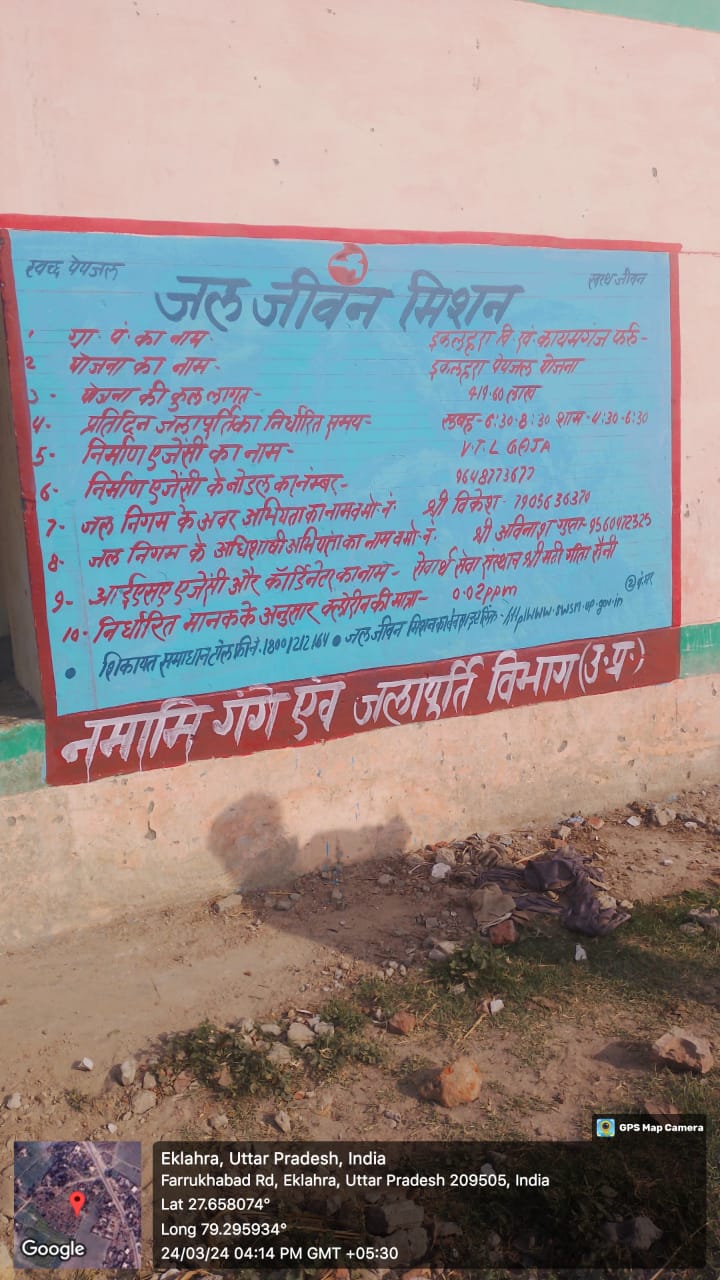 स्वच्छ पेयजल
स्वस्थ जीवन
जल जीवन मिशन
1 ग्रा. पं. का नाम- इकलहरा वि. खं. कायमगंज फर्रु-
2 योजना का नाम- इकलहरा पेयजल योजना
3- योजना की कुल लागत- 419.60 लाख
4- प्रतिदिन जलापूर्तिका निर्धारित समय- सुबह-6:30-8:30 शाम-4:30-6:30
5- निर्माण एजेंसी का नाम- V.T.L
6- निर्माण एजेंसी के नोडल का नंम्बर- 9648773677
7- जल निगम के अवर अभियंता का नाम व मो. नं. श्री विकेश- 7905636370
8- जल निगम के अधिशाषी अभियंता का नाम व मो. नं. श्री अविनाश गुप्ता- 9560972325
9- आईएसए एजेंसी और कॉर्डिनेटर का नाम- सेवार्थ सेवा संस्थान श्रीमती गीता सैनी
10- निर्धारित मानक के अनुसार क्लोरीन की मात्रा- 0.02ppm
• शिकायत समाधान टोल फ्री नं. 18001212164 • जल जीवन मिशन का वेबसाइट लिंक- www.swsm.up.gov.in
नमामि गंगे एवं जलापूर्ति विभाग (उ.प्र.)
GPS Map Camera
Eklahra, Uttar Pradesh, India
Farrukhabad Rd, Eklahra, Uttar Pradesh 209505, India
Lat 27.658074°
Long 79.295934°
24/03/24 04:14 PM GMT +05:30
Google